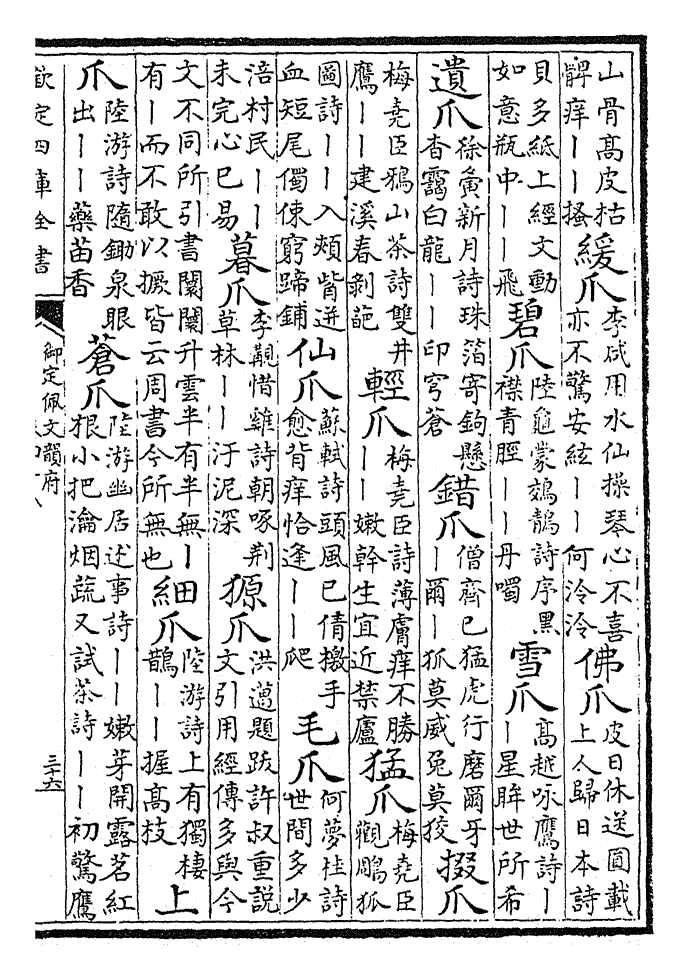 山骨高皮枯
髀痒丨丨搔
緩爪
李咸用水仙操琴心不喜
亦不驚安絃丨丨何泠泠
佛爪
皮日休送圓載
上人歸日本詩
貝多紙上經文動
如意瓶中丨丨飛
碧爪
陸龜蒙鵁鶄詩序黑
襟青脛丨丨丹噣
雪爪
高越咏鷹詩丨
丨星眸世所希
遺爪
徐夤新月詩珠箔寄鉤懸
杳靄白龍丨丨印穹蒼
錯爪
僧齊己猛虎行磨爾牙
丨爾丨狐莫威兔莫狡
掇爪
梅堯臣鴉山茶詩雙井
鷹丨丨建溪春剝葩
輕爪
梅堯臣詩薄膚痒不勝
丨丨嫩幹生宜近禁廬
猛爪
梅堯臣
觀鵰狐
圖詩丨丨入頰觜迸
血短尾獨悚窮蹄鋪
仙爪
蘇軾詩頭風已倩檄手
愈背痒恰逢丨丨爬
毛爪
何夢桂詩
世間多少
涪村民丨丨
未完心已易
暮爪
李覯惜雞詩朝啄荆
草林丨丨汙泥深
獂爪
洪邁題跋許叔重説
文引用經傳多與今
文不同所引書闤闠升雲半有半無丨
有丨而不敢以撅皆云周書今所無也
細爪
陸游詩上有獨棲
鵲丨丨握高枝
上
爪
陸游詩隨鋤泉眼
出丨丨藥苗香
蒼爪
陸游幽居述事詩丨丨嫩芽開露茗紅
根小把瀹烟蔬又試茶詩丨丨初驚鷹
欽定四庫全書
御定佩文韻府
三十六